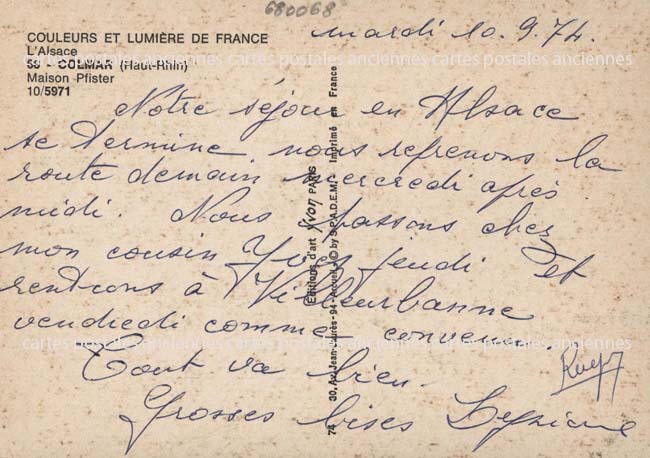 680068
mardi 10.9.74.
COULEURS ET LUMIÈRE DE FRANCE
L'Alsace
58 - COLMAR (Haut-Rhin)
Maison Pfister
10/5971
Notre séjour en Alsace
se termine nous reprenons la
route demain mercredi après
midi. Nous passons chez
mon cousin Yves jeudi et
rentrons à Villeurbanne
vendredi comme convenu.
Tout va bien.
Grosses bises
Editions d'art Yvon PARIS
30, Av. Jean-Jaurès - 94 - Arcueil - © by S.P.A.D.E.M. Imprimé en France
74
cartes postales anciennes cartes postales anciennes cartes postales anciennes
cartes postales anciennes cartes postales anciennes cartes postales anciennes